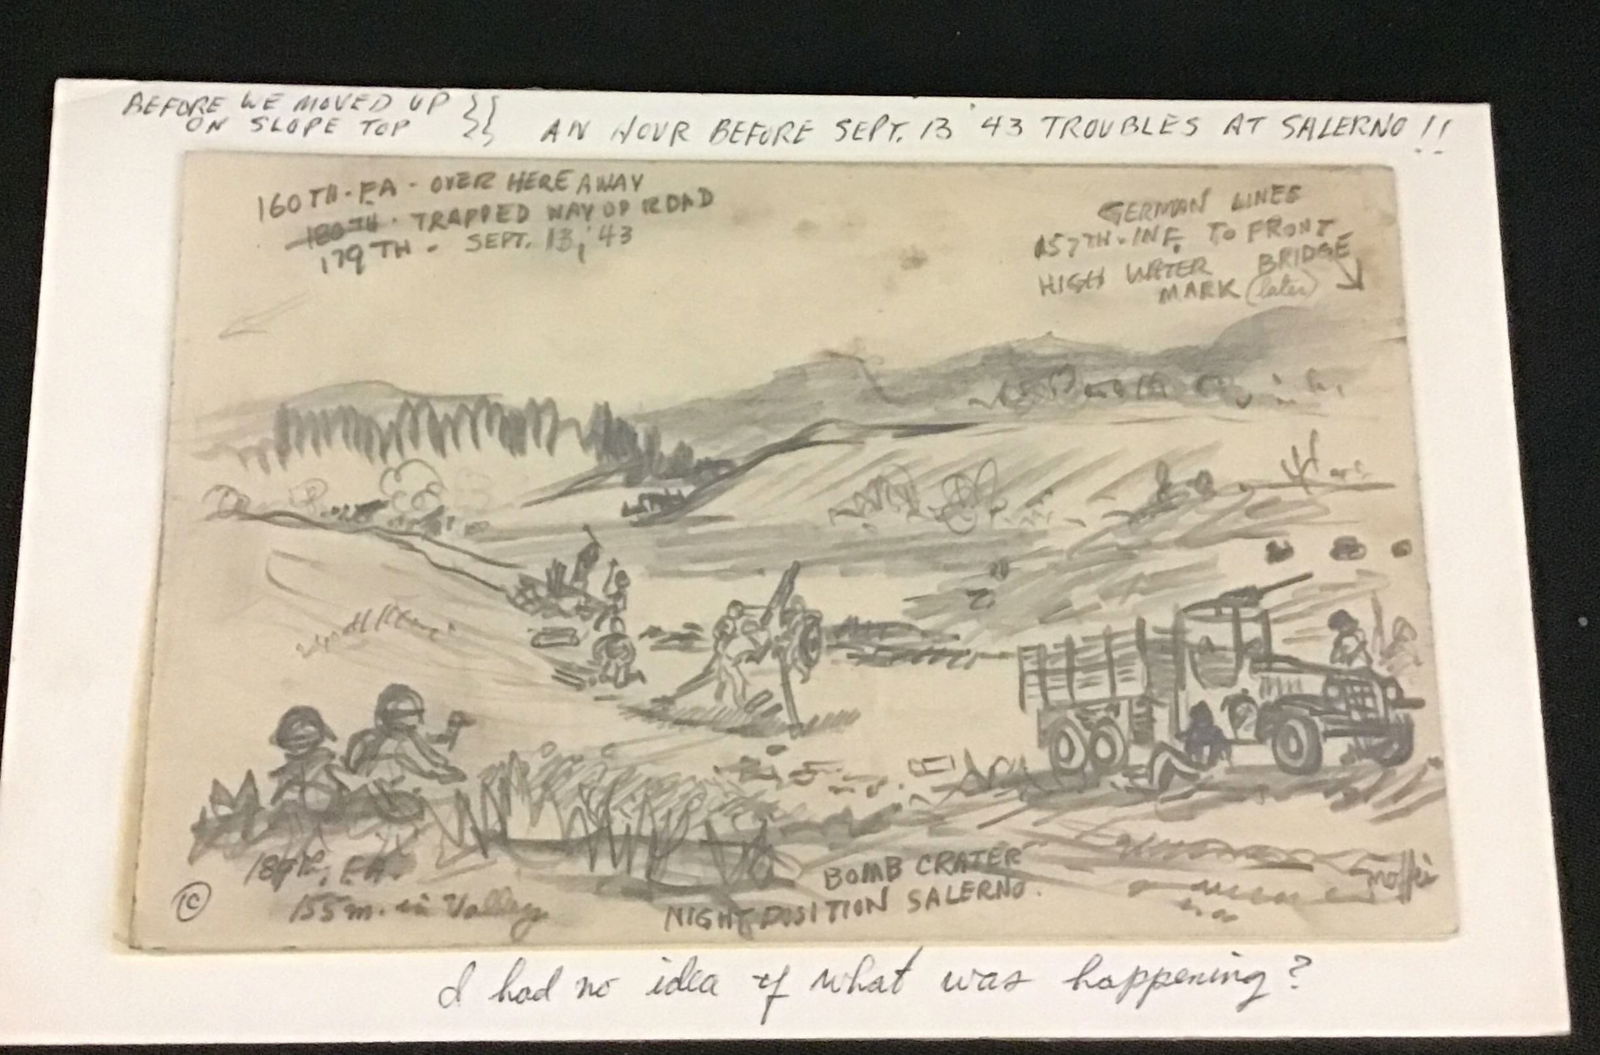 BEFORE WE MOVED UP
ON SLOPE TOP
AN HOUR BEFORE SEPT. 13 '43 TROUBLES AT SALERNO!!
160TH. FA - OVER HERE AWAY
180TH. TRAPPED WAY UP ROAD
179TH - SEPT. 13, '43
GERMAN LINES
157TH. INF. TO FRONT
HIGH WATER BRIDGE
MARK (later)
189th, FA.
155 m. in Valley
BOMB CRATER
NIGHT POSITION SALERNO.
©
I had no idea of what was happening?